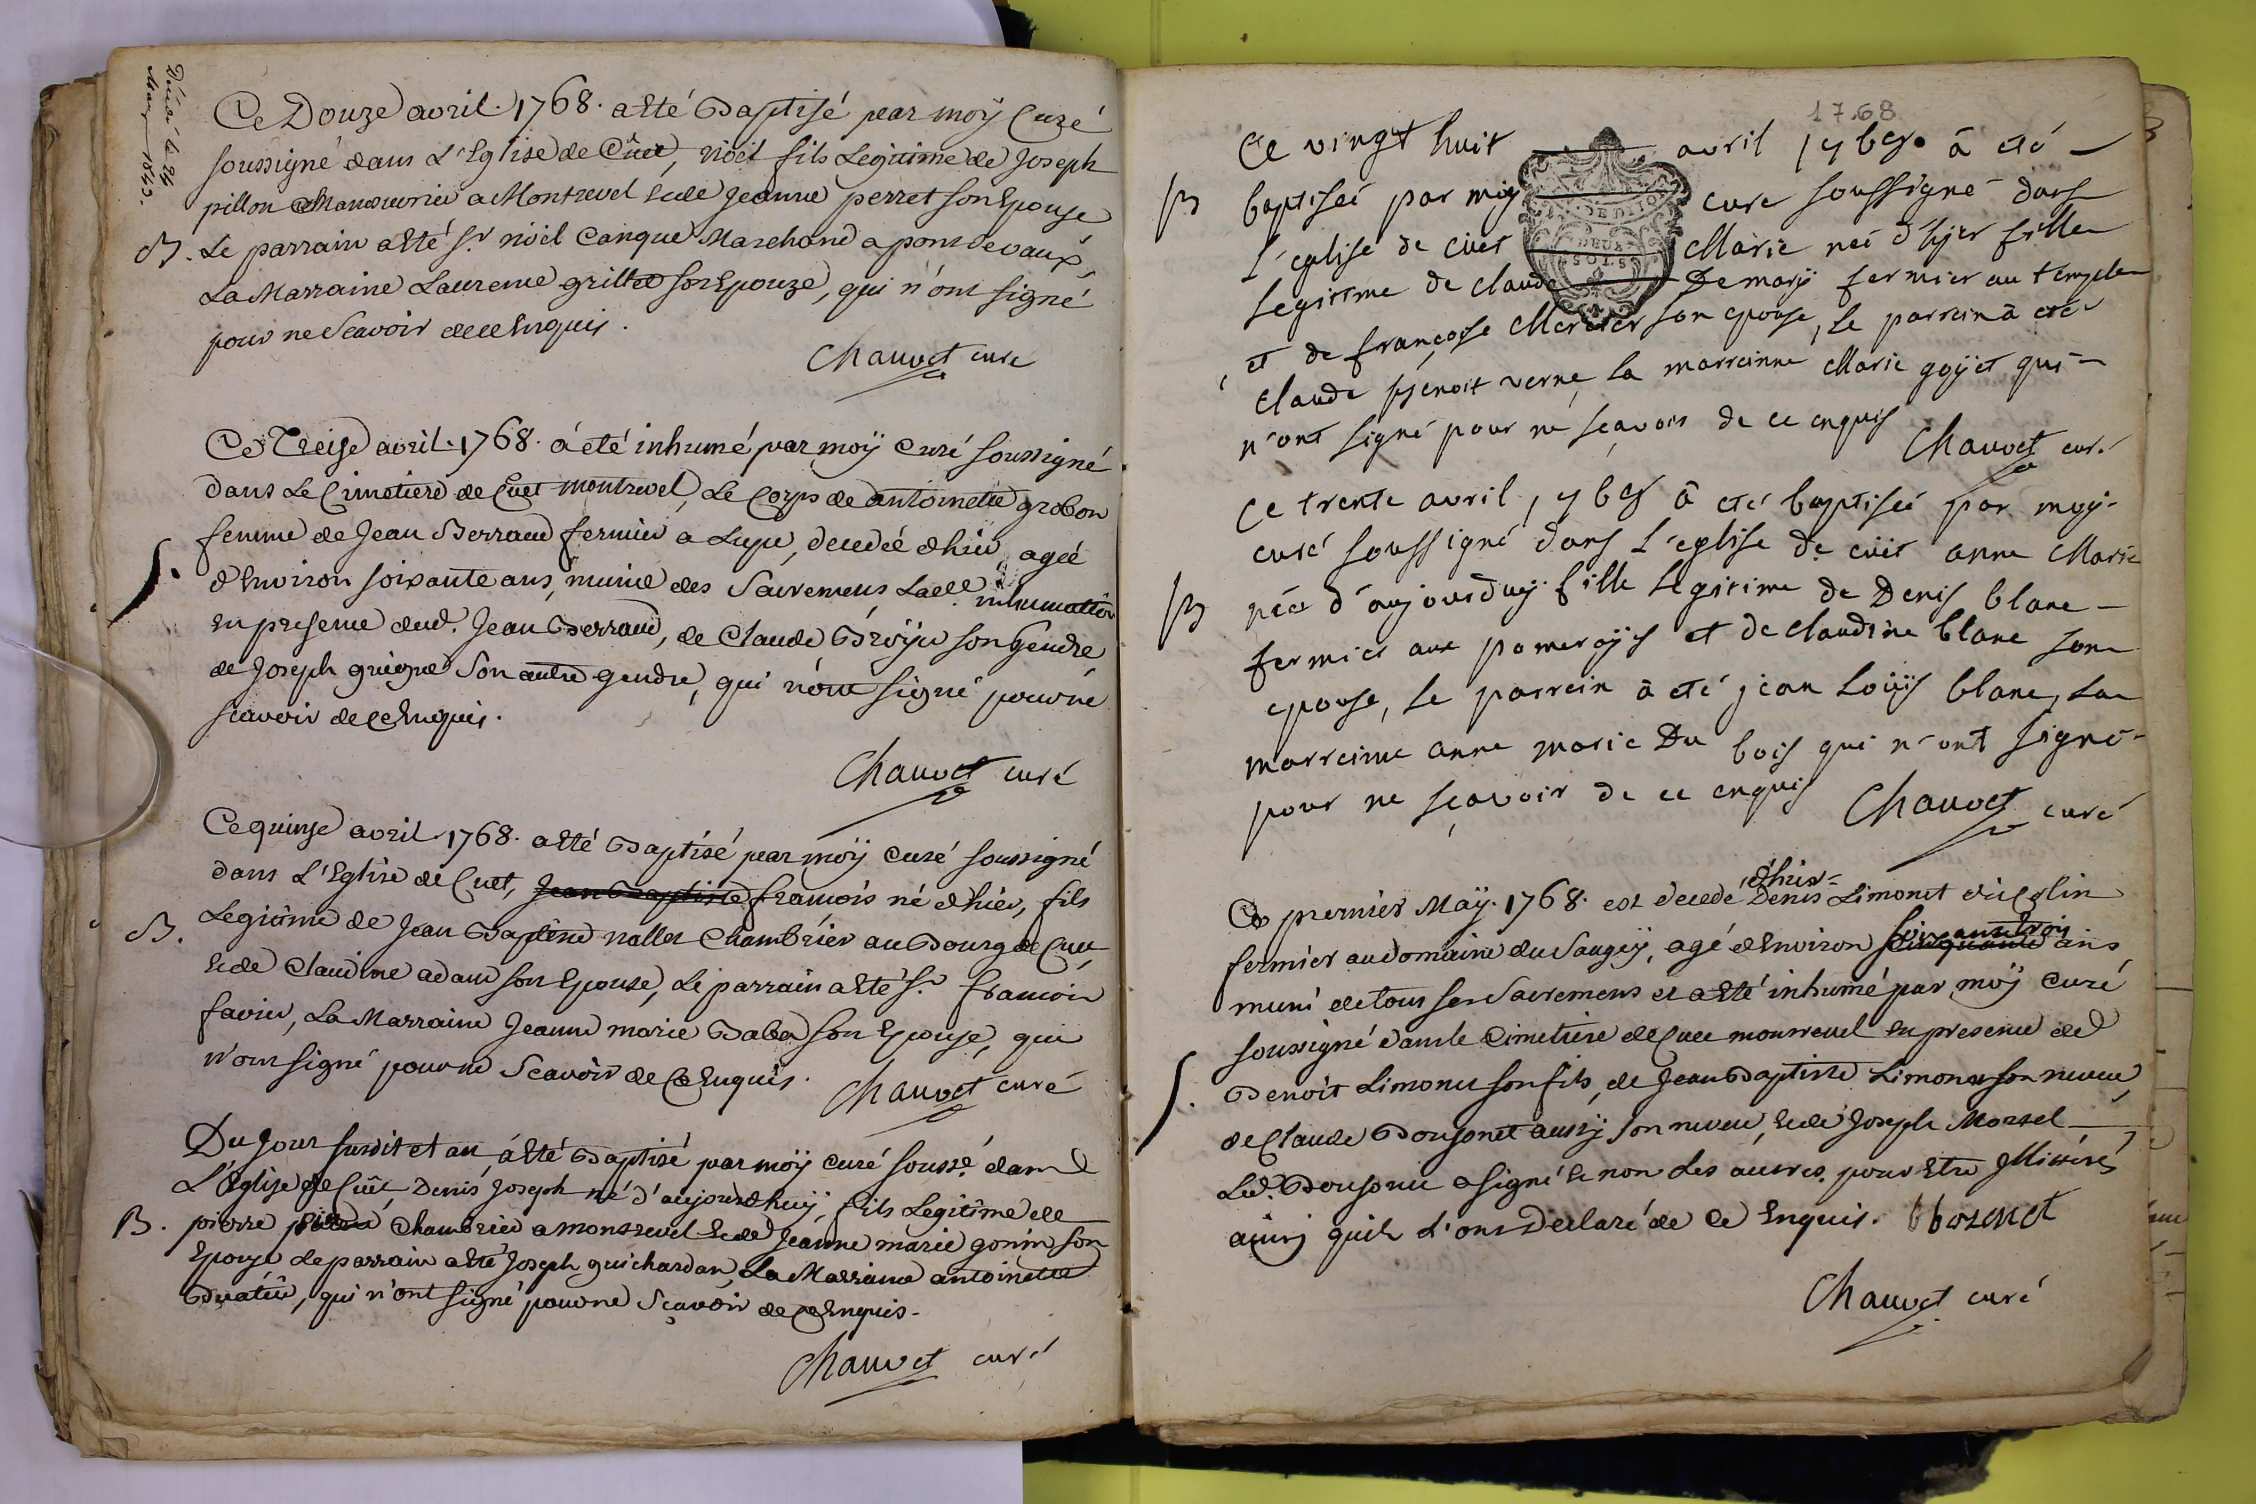 Décédé le 24
Mars 1843.
Ce Douze avril 1768. a Eté Baptisé par moÿ Curé
soussigné dans L'Eglise de Cuet, nöel fils Legitime de Joseph
pillon Manouvrier a Montrevel et de Jeanne perret son Epouse
B. Le parrain a Eté Sr. nöel Canque Marchand a pont de vaux,
La Marraine Laurence grillet son Epouze, qui n'ont signé
pour ne Scavoir de ce Enquis.
Chauvet curé
Ce Treise avril 1768. á eté inhumé par moÿ Curé soussigné
dans Le Cimetiere de Cuet montrevel, Le Corps de antoinette grobon
femme de Jean Berraud fermier a Luye, decedeé d'hier, ageé
S. d'Environ soixante ans, munie des Sacremens Lad. inhumation
en presence dud. Jean Berraud, de Claude Broÿer son Gendre
de Joseph guigue Son autre gendre, qui n'ont signé pour ne
scavoir de ce Enquis.
Chauvet curé
Ce quinse avril 1768. a Eté Baptisé par moÿ Curé soussigné
dans L'Eglise de Cuet, Jean Baptiste francois né d'hier, fils
B. Legitime de Jean Baptiste nallet Chambrier au Bourg de Cuet,
et de Claudine adam son Epouse, Le parrain a Eté Sr. francois
favier, La Marraine Jeanne marie Baba son Epouse, qui
n'ont signé pour ne Scavoir de Ce Enquis.
Chauvet curé
Du Jour susdit et an, á Eté Baptisé par moÿ curé souss.é dans
L'Eglise de Cuët, Denis Joseph né d'aujourdhuÿ, fils Legitime de
B. pierre Chambrier a montrevel et de Jeanne marie gonin son
Epouse Le parrain a Eté Joseph guichardan, La Marraine antoinette
Buatîer, qui n'ont signé pour ne Sçavoir de ce Enquis.
Chauvet curé
1768
Ce vingt huit avril 1768. â eté
B baptiseé par moy curé soussigné dans
l'eglise de cüet Marie neé d'hjer fille
legitime de claude Demarÿ fermier au temple
et de françoise Mercier son epouse, le parrein â eté
claude benoit verne, la marreinne Marie goÿet qui
n'ont signé pour ne sçavoir de ce enquis
Chauvet curé
Ce trente avril 1768 â eté baptiseé par moy
curé soussigné dans l'eglise de cüet anne Marie
B neé d'aujourduÿ fille legitime de Denis blanc
fermier aux pomeroÿs et de claudine blanc son
epouse, le parrein â eté jean Loüÿs blanc, la
marreinne anne marie Du bois qui n'ont signé
pour ne sçavoir de ce enquis
Chauvet curé
d'hier
Ce premier Maÿ 1768. est decedé Denis Limonet dit Colin
soixante trois
fermier au domaine du Saugeÿ, agé d'Environ cinquante ans
muni de tous ses Sacremens et a Eté inhumé par moÿ Curé
soussigné dans le Cimetiere de Cuet montrevel en presence de
S. Benoit Limonet son fils, de Jean Baptiste Limonet son neveu,
de Claude Bousonet aussÿ son neveu, et de Joseph Morsel
Led. Bousonet a signé Et non Les autres pour Etre Illitérés
ainsj quils L'ont Declaré de Ce Enquis. bbozonet
Chauvet curé